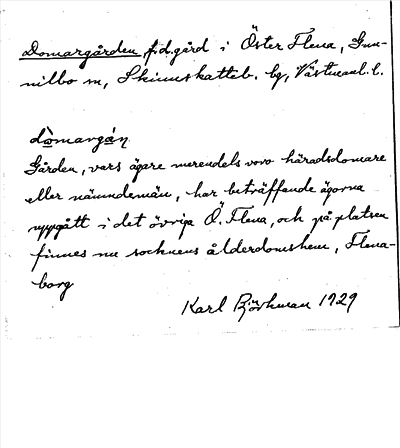 Domargården, f.d. gård i Öster Flena, Gun-
nilbo sn, Skinnskatteb. bg, Västmanl. l.
dòmargán
Gården, vars ägare merendels voro häradsdomare
eller nämndemän, har beträffande ägorna
uppgått i det övriga Ö. Flena, och på platsen
finnes nu socknens ålderdomshem, Flena-
borg
Karl Björkman 1929